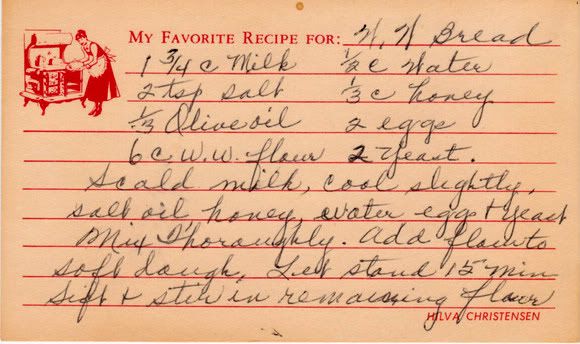 MY FAVORITE RECIPE FOR: W. W Bread
1 3/4 c Milk 1/2 c Water
2 tsp salt 1/3 c honey
1/3 Olive oil 2 eggs
6 c W.W. flour 2 Yeast.
Scald milk, cool slightly,
salt oil honey, water eggs & yeast
Mix Thoroughly. Add flour to
soft dough, Let stand 15 min
Sift & stir in remaining flour
HILVA CHRISTENSEN